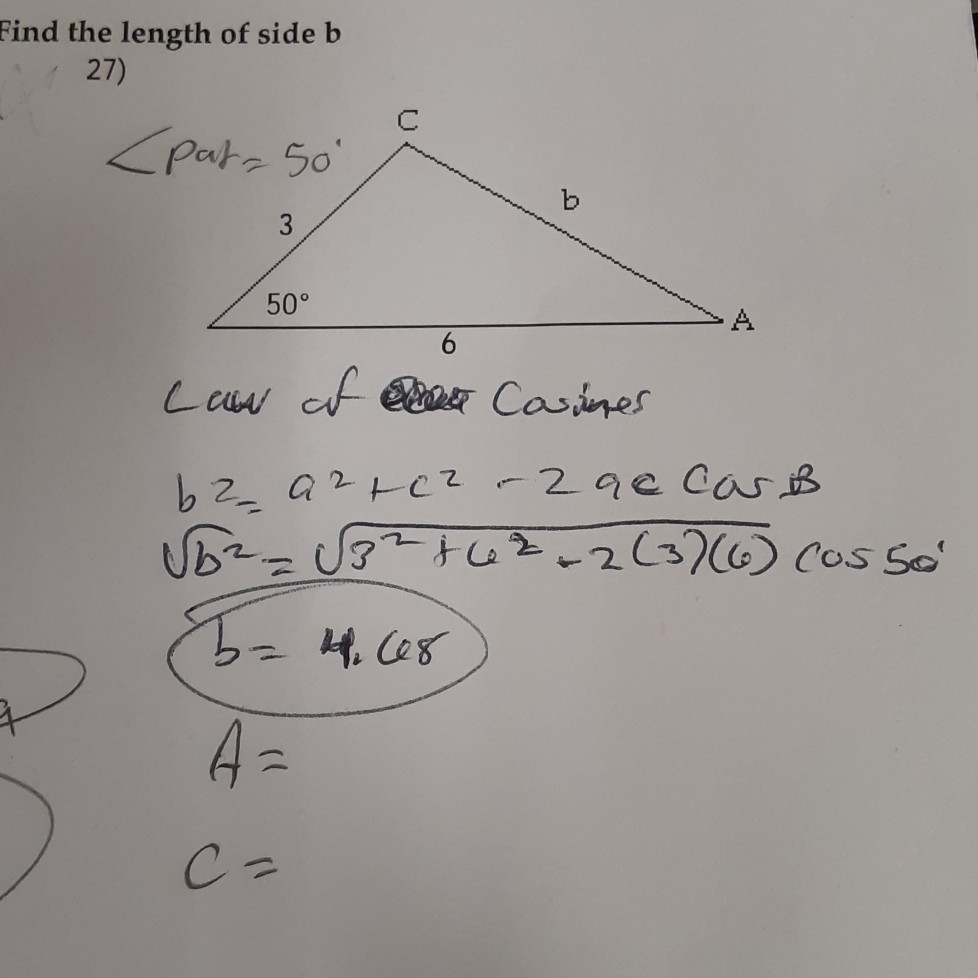 Find the length of side b
27)
C
<par = 50°
b
3
50°
A
6
Law of Cosines
b2 = a2 + c2 - 2ac Cos B
√b2 = √32 + 62 - 2(3)(6) Cos 50°
b = 4.68
A =
C =